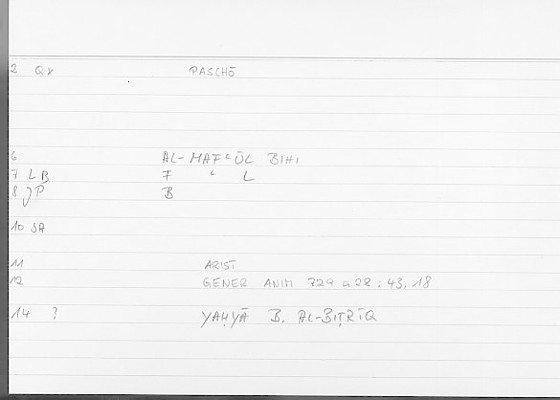 2 Qv PASCHŌ
6 AL-MAFʿŪL BIHI
7 LB F ʿ L
8 JP B
10 SA
11 ARIST
12 GENER ANIM 729 a 28 : 43.18
14 ? YAḤYĀ B. AL-BIṬRĪQ